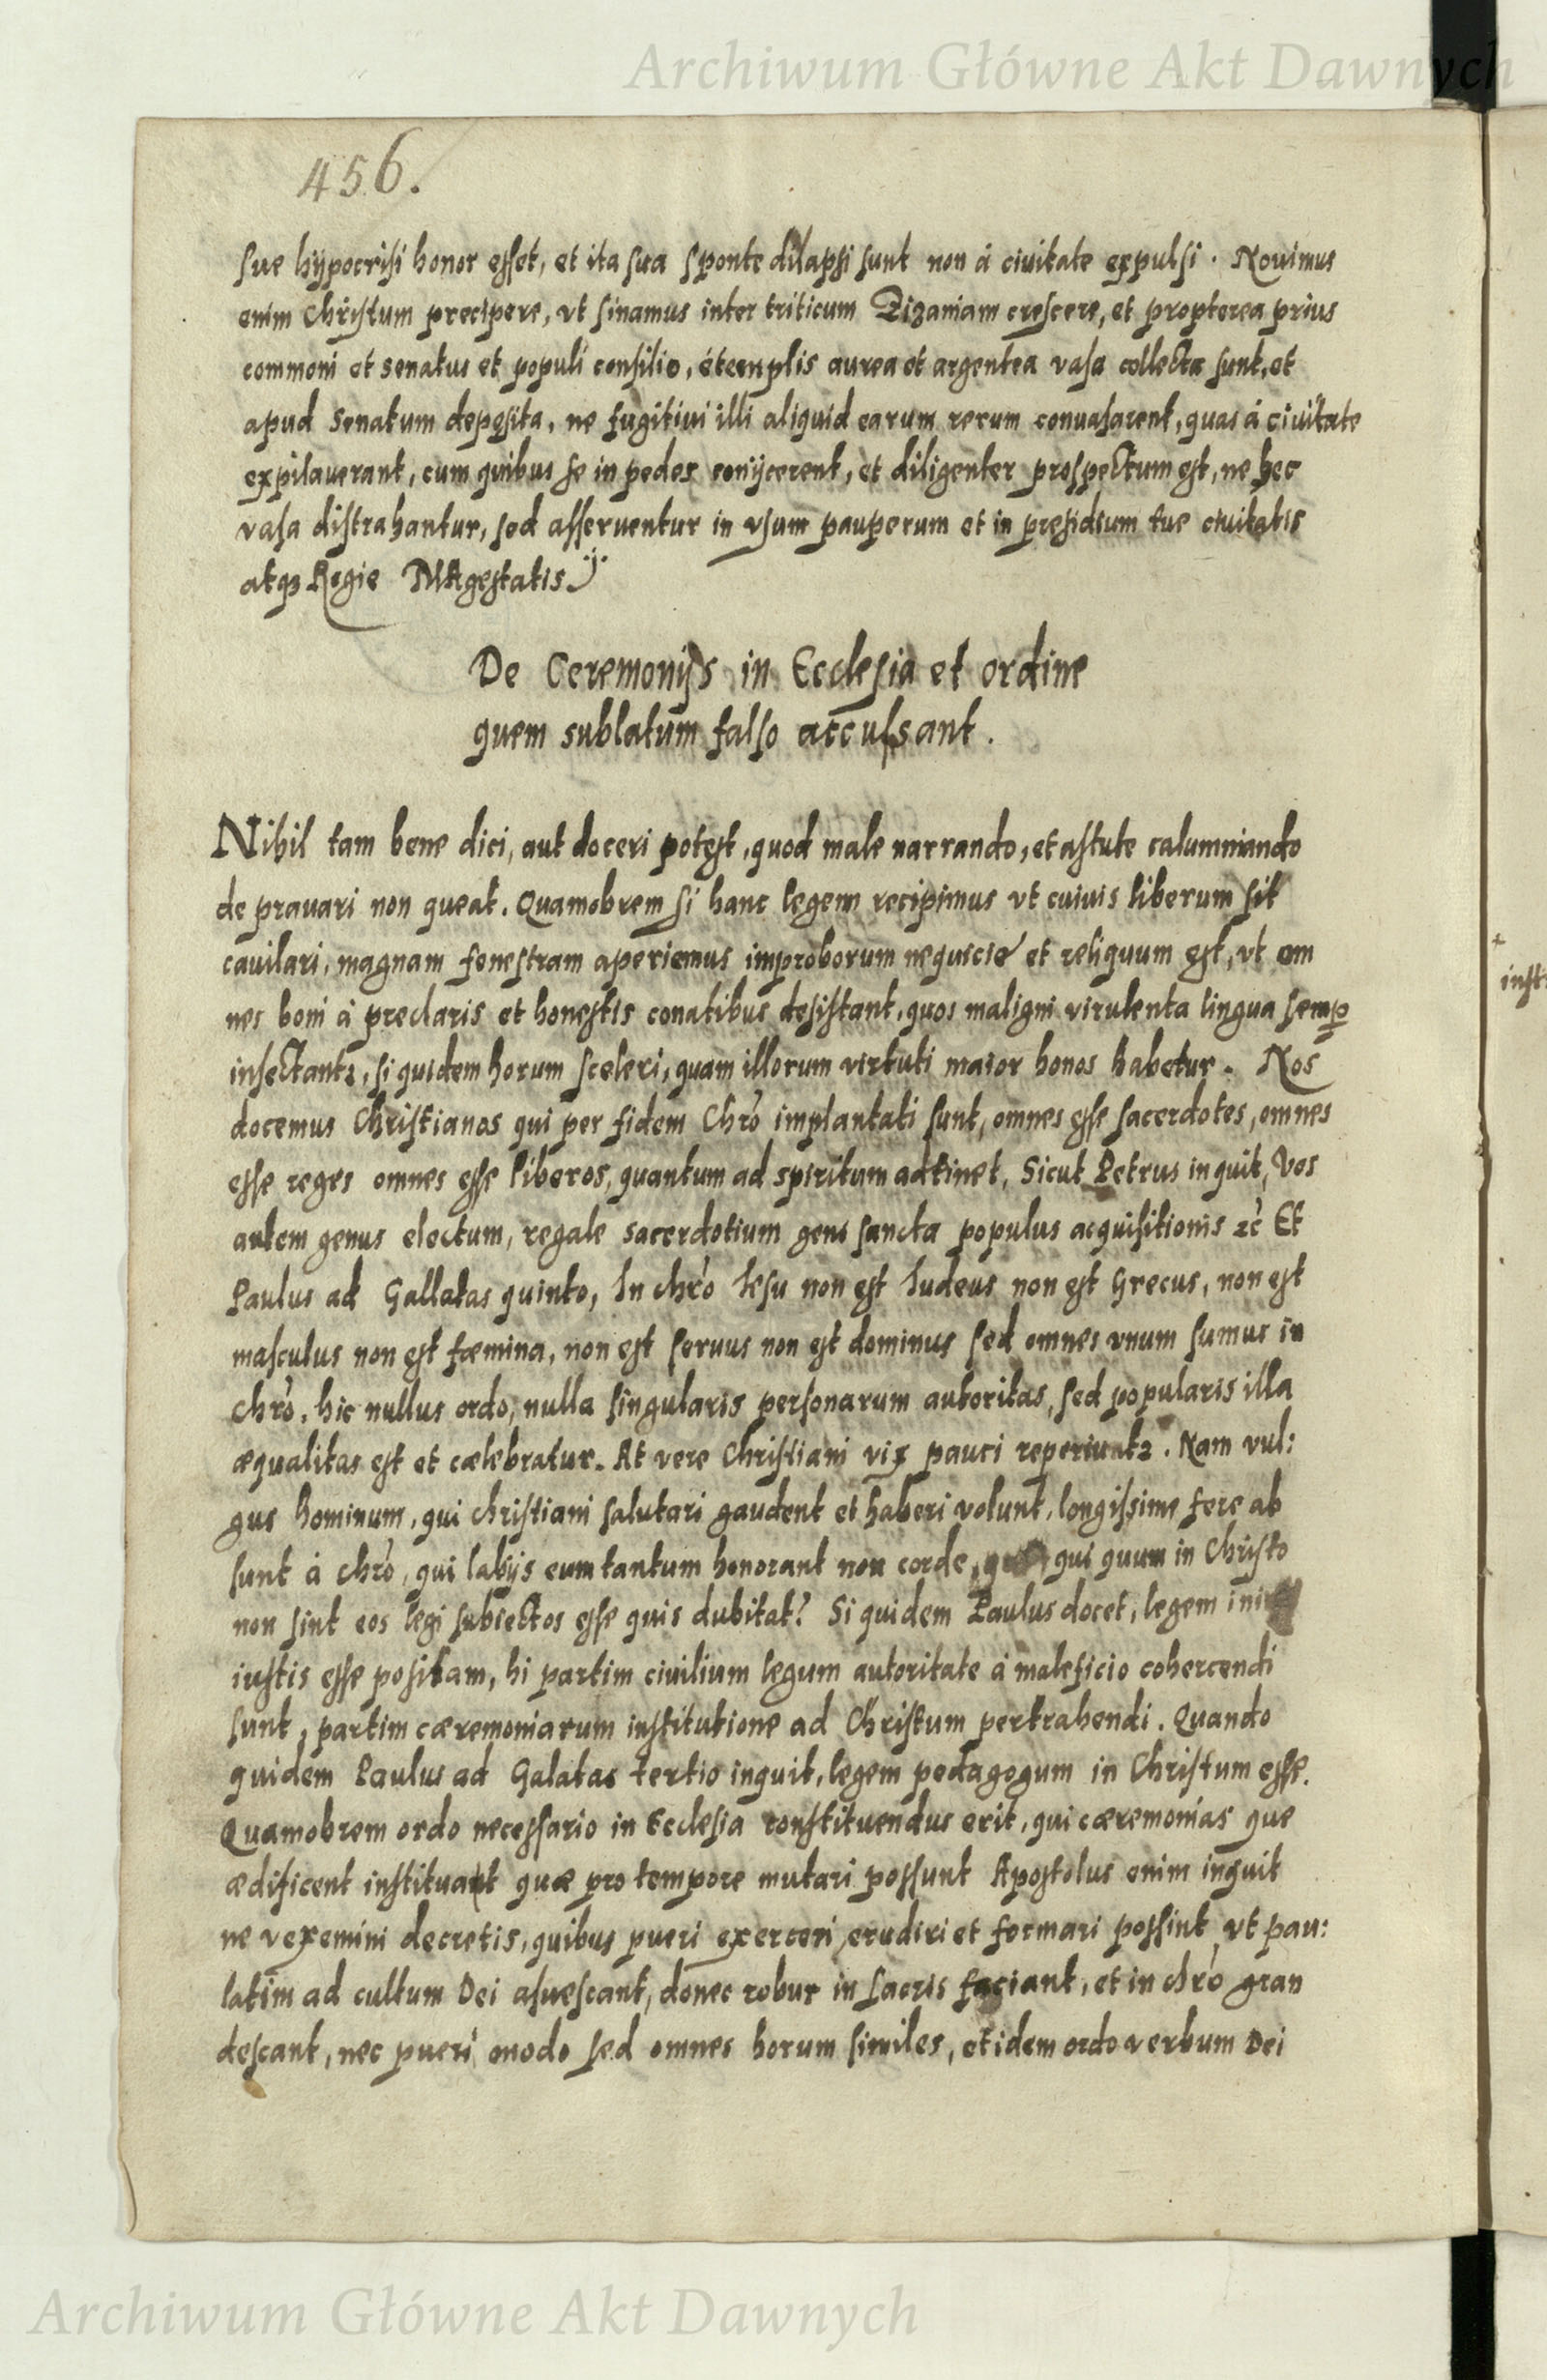 Archiwum Główne Akt Dawnych
456.
sue hÿpocrisi honor esset, et ita sua sponte dilapsi sunt non à ciuitate expulsi. Nouimus
enim Christum precipere, vt sinamus inter triticum Zizaniam crescere, et propterea prius
commoni et senatus et populi consilio, è templis aurea et argentea vasa collecta sunt, et
apud Senatum deposita, ne fugitiui illi aliquid earum rerum conuasarent, quas à ciuitate
expilauerant, cum quibus se in pedes conijcerent, et diligenter prospectum est, ne hec
vasa distrahantur, sed asseruentur in vsum pauperum et in presidium tue ciuitatis
atq3 Regie MAgestatis
De Ceremonijs in Ecclesia et ordine
quem sublatum falso accusant.
Nihil tam bene dici, aut doceri potest, quod male narrando, et astute calumniando
de prauari non queat. Quamobrem si hanc legem recipimus vt cuiuis liberum sit
cauilari, magnam fenestram aperiemus improborum nequicie et reliquum est, vt om
nes boni à preclaris et honestis conatibus desistant, quos maligni virulenta lingua semp
insectant2, si quidem horum sceleri, quam illorum virtuti maior honos habetur. Nos
docemus Christianos qui per fidem Chro implantati sunt, omnes esse sacerdotes, omnes
esse reges omnes esse liberos, quantum ad spiritum adtinet, Sicut Petrus inquit, Vos
autem genus electum, regale sacerdotium gens sancta populus acquisitionis 2c Et
Paulus ad Gallatas quinto, In chro Iesu non est Iudeus non est Grecus, non est
masculus non est fœmina, non est seruus non est dominus sed omnes vnum sumus in
chro, hic nullus ordo, nulla singularis personarum autoritas, sed popularis illa
æqualitas est et cælebratur. At vere Christiani vix pauci reperiunt2. Nam vul:
gus hominum, qui christiani salutari gaudent et haberi volunt, longissime fere ab
sunt à chro, qui labijs eum tantum honorant non corde, qui quum in Christo
non sint eos legi subiectos esse quis dubitat? Si quidem Paulus docet, legem
iustis esse positam, hi partim ciuilium legum autoritate à maleficio cohercendi
sunt, partim cæremoniarum institutione ad Christum pertrahendi. Quando
quidem Paulus ad Galatas tertio inquit, legem pedagogum in Christum esse.
Quamobrem ordo necessario in Ecclesia constituendus erit, qui cæremonias que
ædificent instituant quæ pro tempore mutari possunt Apostolus enim inquit
ne vexemini decretis, quibus pueri exerceri erudiri et formari possint vt pau:
latim ad cultum Dei asuescant, donec robur in sacris faciant, et in chro gran
descant, nec pueri modo sed omnes horum similes, et idem ordo verbum Dei
Archiwum Główne Akt Dawnych